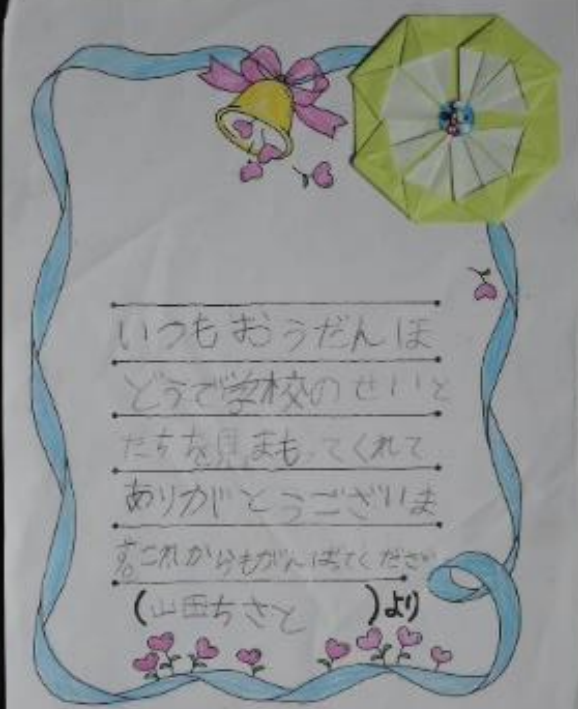 いつもおうだんほ
どうで学校のせいと
たちを見まもってくれて
ありがとうございま
す。これからもがんばてください
(山田ちさと)より